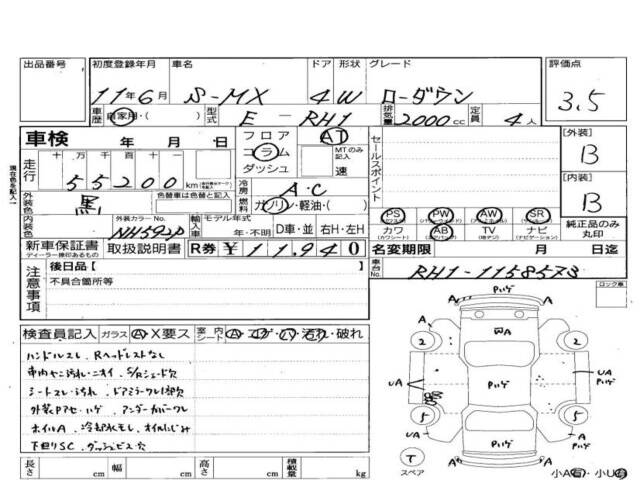 出品番号 初度登録年月 車名 ドア 形状 グレード 評価点
11年6月 S-MX 4W ローダウン 3.5
車歴 自家用・( ) 型式 E-RH1 排気量 2000cc 定員 4人
車検 年 月 日 フロア AT
コラム MTのみ記入
ダッシュ 速
セールスポイント
[外装] B
[内装] B
走行 十 万 千 百 十 一
55200 km
冷房 A・C
燃料 ガソリン・軽油・( )
外装色 黒 色替車は色替と記入
内装色 外装カラーNo. NH592P 輸入車 モデル年式 年・不明 D車・並 右H・左H
PS PW AW SR
カワ AB TV ナビ
(カワシート) (エアバック) (地デジ) (ナビゲーション)
純正品のみ丸印
新車保証書 取扱説明書 R券 ¥11,940
ディーラー捺印あるもの
名変期限 月 日迄
車台No. RH1-1158573
注意事項 後日品【 】
不具合箇所等
ロック車
検査員記入 ガラス A・X要ス 室内シート A・コゲ・ハリ・汚れ・破れ
ハンドルスレ、Rヘッドレストなし
車内ヤニ汚れ・ニオイ、S/Rシェード欠
シートスレ・汚れ、ドアミラーワレ
外装Pアセ・ハゲ、アンダーカバーワレ
ホイルA、冷却水モレ、オイルにじみ
下回りSC、ダッシュビス穴
長さ cm 幅 cm 高さ cm 積載量 kg
現在色を記入
Pハゲ
A A
UA
2 2
A A
UA Pハゲ UA Pハゲ
5 5
UA Pハゲ UA
T スペア A A
小A・小U